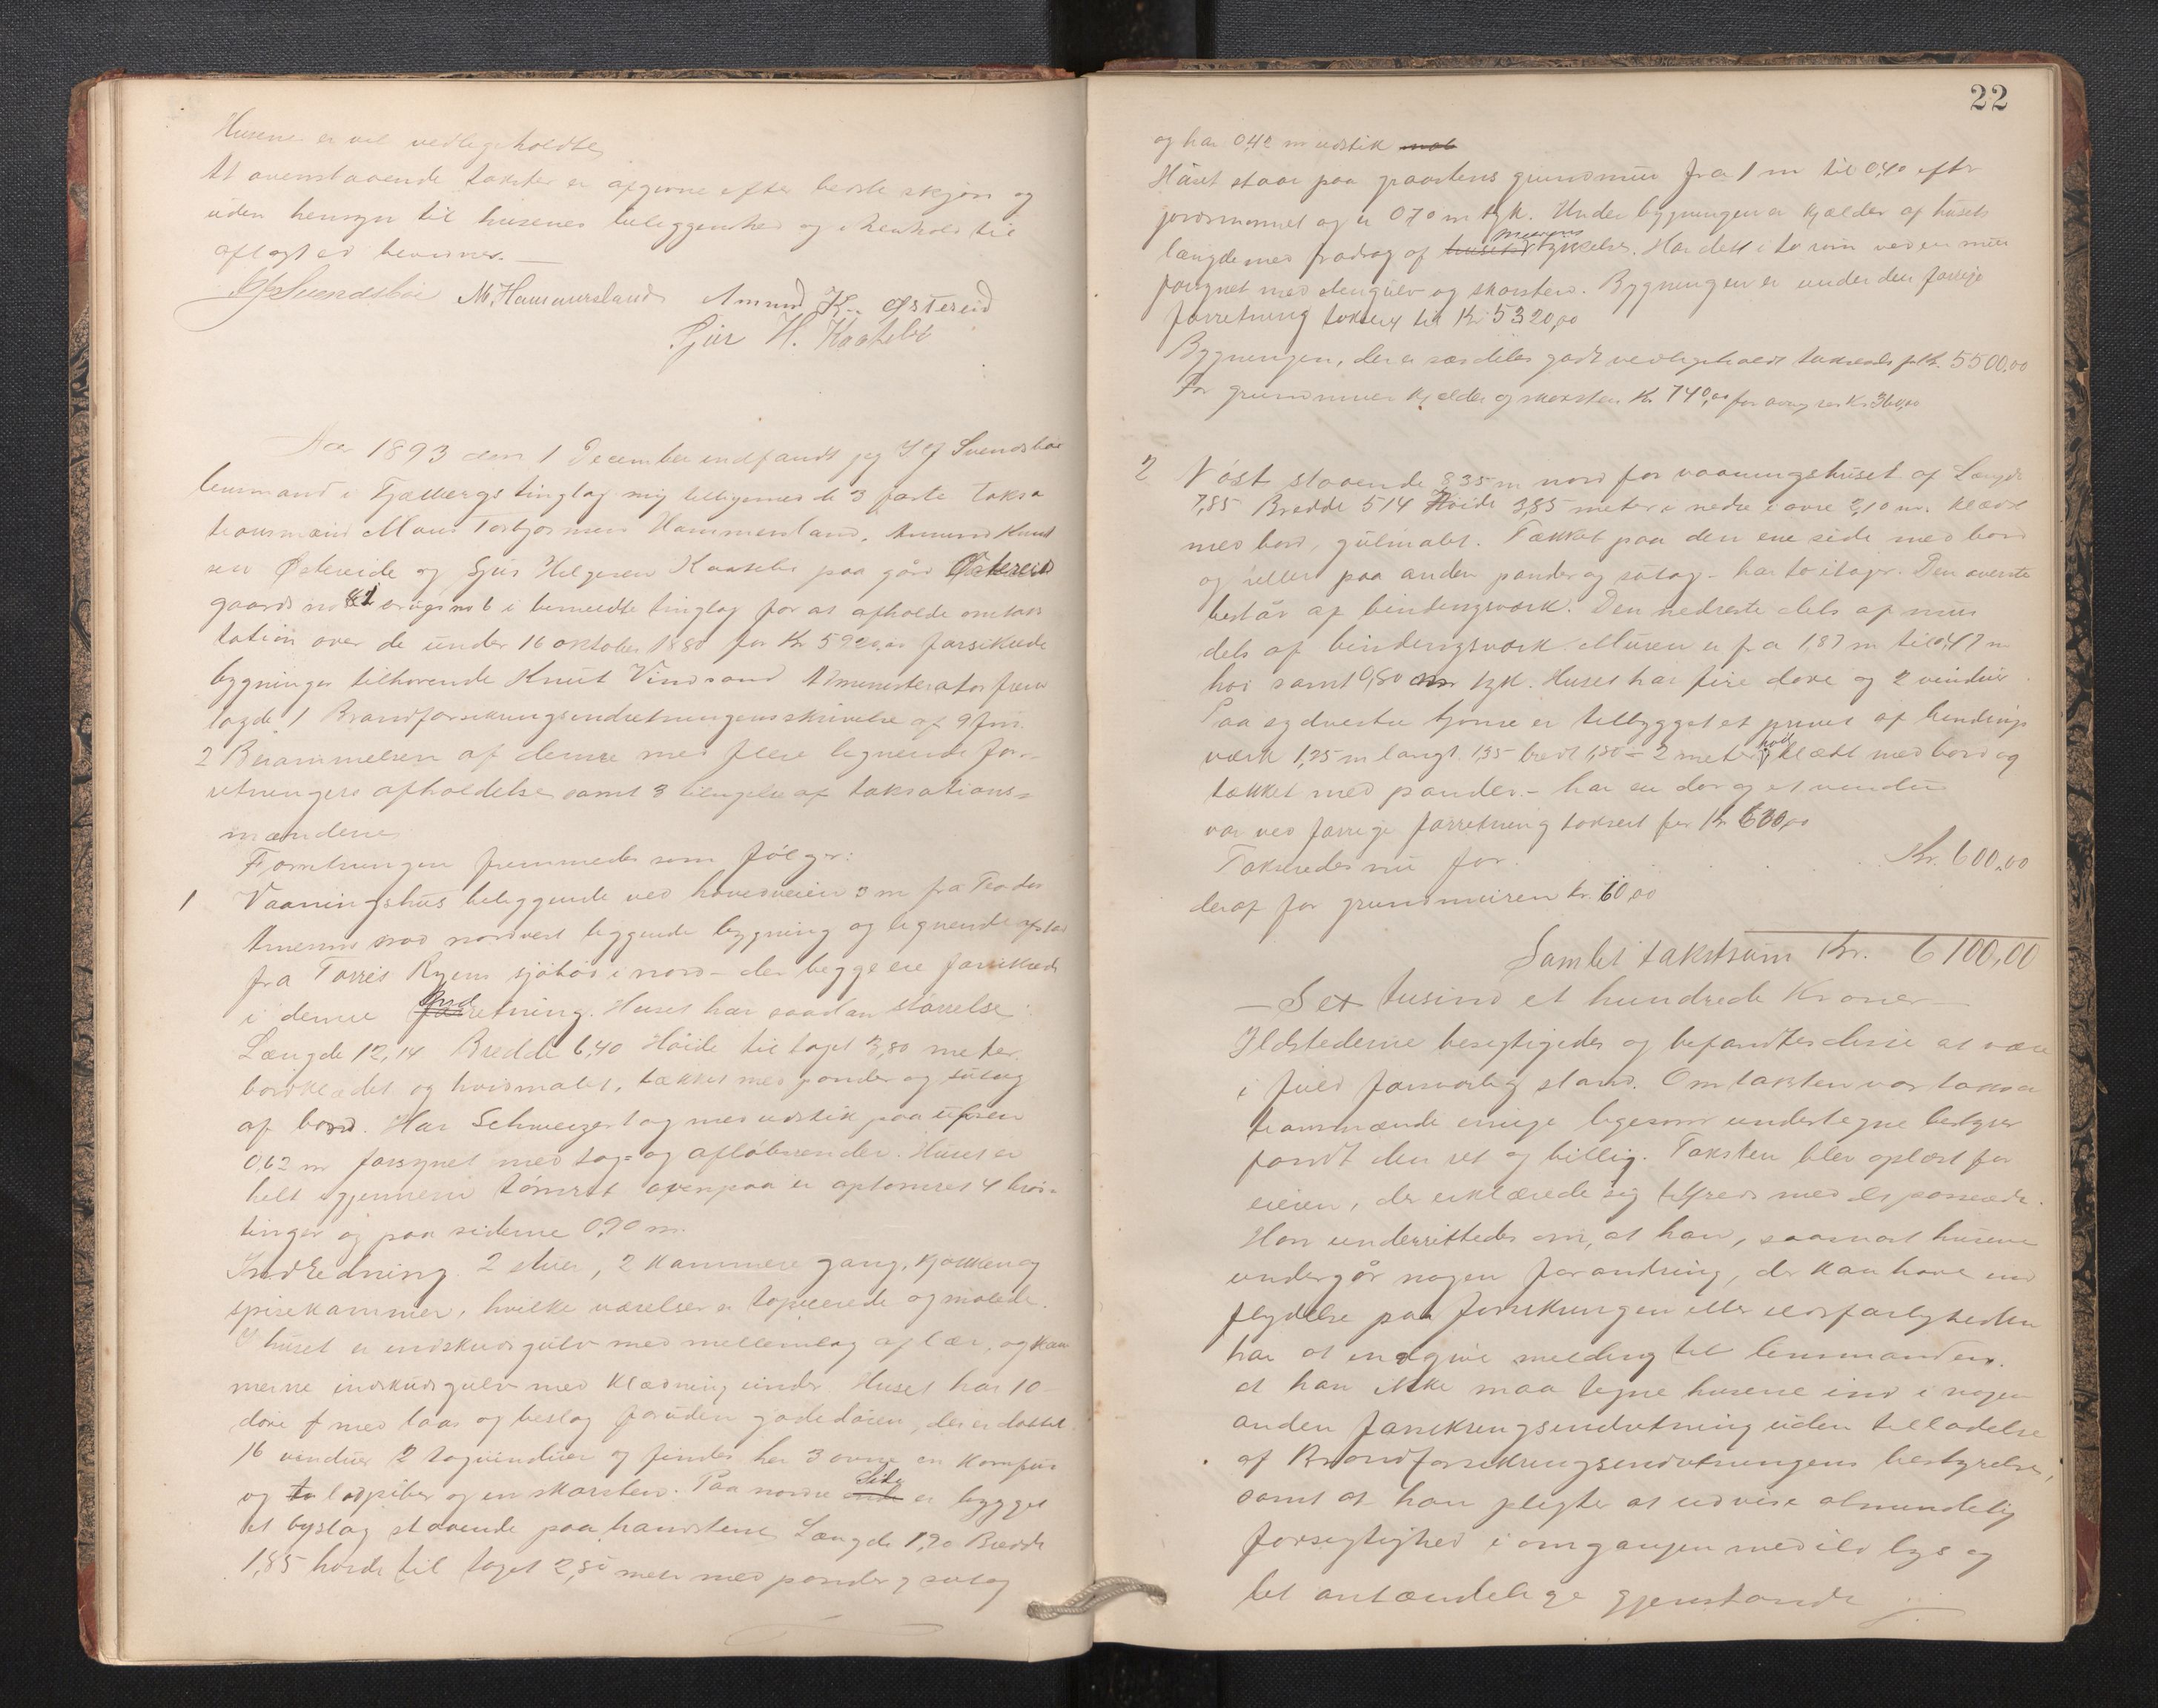 Husene er vel vedligeholdte,
At ovenstaaende takster er afgivne efter bedste skjøn og
uden hensyn til husenes beliggenhed og i henhold til
aflagt ed bevidnes. —
Svendsbøe M. Hammersland Amund K. Østereid
Sjur H. Kaatebø
Aar 1893 den 1 December indfandt jeg Svendsbøe
lensmand i Fjælbergs tinglag mig tilligemed de 3 faste taksa
tionsmænd Mons Torbjørnsen Hammersland, Amund Knut
sen Østereide og Sjur Helgesen Kaatebø paa gård Østereid
gaards no brugs no 6 i bemeldte tinglag for at afholde omtax
tation over de under 16 oktober 1880 for Kr 5920,00 forsikrede
bygninger tilhørende Knut Vindsand Administrator frem
lagde 1 Brandforsikringsindretningens skrivelse af 9 Jun.
2 Berammelsen af denne med flere lignende for-
retningers afholdelse samt 3 tilsigelse af taksations-
mændene
Forretningen fremmedes som følger:
1 Vaaningshus beliggende ved hovedveien 3 m fra Peder
Arnesens mod nordvest liggende bygning og lignende afstad
fra Torris Ryens sjøbod i nord – der begge ere forsikrede
i denne indretning. Huset har saadan størrelse:
Længde 12,14 Bredde 6,40 Høide til taget 3,80 meter.
bordklædet og hvidmalet, tækket med pander og sutag
af bord. Har Schweizertag med udstik paa upsen
0,62 m forsynet med tag- og afløbsrender. Huset er
helt igjennem tømret ovenpaa er optømret 4 hvis-
tinger og paa siderne 0,90 m.
Indredning 2 stuer, 2 kammere gang, kjøkken og
spisekammer, hvilke værelser er tapeserede og malede.
I huset er indskudsgulv med mellemlag af lær, og kam
merne indskudsgulv med klædning under. Huset har 10
døre med laas og beslag foruden gadedøren, der er dobbel.
16 vinduer 2 tagvinduer og findes her 3 ovne en komfur
og ladpiber og en skorsten. Paa nordre side er bygget
et byslag staaende paa handstene Længde 1,90 Bredde
1,85 høide til taget 2,50 meter med pander og sutag
22
og har 0,40 m udstik
Huset staar paa graastens grundmur fra 1 m til 0,40 efter
jordsmonnet og er 0,70 m tyk. Under bygningen er kjælder af husets
længde med fradrag af murens tykkelse. Har delt i to rum ved en mur
forsynet med stengulv og skorsten. Bygningen er under den forrige
forretning takseret til Kr 5320,00
Bygningen, der er særdeles godt vedligeholdt takseredes for Kr. 5500,00
For grundmuer kjælder og skorsten Kr 740,00 for ovne Kr 360,00
2 Nøst staaende 8,35 m nord for vaaningshuset af Længde
7,85 Bredde 5,14 Høide 3,85 meter i nedre i øvre 2,10 m. klædt
med bord, gulmalet. Tækket paa den ene side med bord
og heller paa anden pander og sutag – har to etager. Den øverste
består af bindingsværk. Den nederste dels af mur
dels af bindingsværk. Muren er fra 1,87 m til 0,47 m
høi samt 0,80 m tyk. Huset har fire døre og 2 vinduer
Paa sydvestre hjørne er tilbygget et privet af bindings
værk 1,25 m langt 1,35 bredt 1,50 – 2 meter høit klædt med bord og
tækket med pander. – har en dør og et vindu
var ved forrige forretning takseret for Kr 600,00
Takseredes nu for . . . . Kr. 600,00
deraf for grundmuren kr. 60,00
Samlet takstsum Kr. 6100,00
— Sex tusind et hundrede Kroner —
Ildstederne besigtigedes og befandtes disse at være
i fuld forsvarlig stand. Om taksten var taksa
tionsmændene enige ligesom undertegnede bestyrer
fandt den ret og billig. Taksten blev oplæst for
eieren, der erklærede sig tilfreds med det passerede.
Han underrettedes om, at han, saasnart husene
undergår nogen forandring, der kan have ind
flydelse paa forsikringen eller ildsfarligheden
har at indgive melding til lensmanden.
at han ikke maa tegne husene ind i nogen
anden forsikringsindretning uden tilladelse
af Brandforsikringsindretningens bestyrelse,
samt at han pligter at udvise almindelig
forsigtighed i omgangen med ild lys og
let antændelige gjenstande